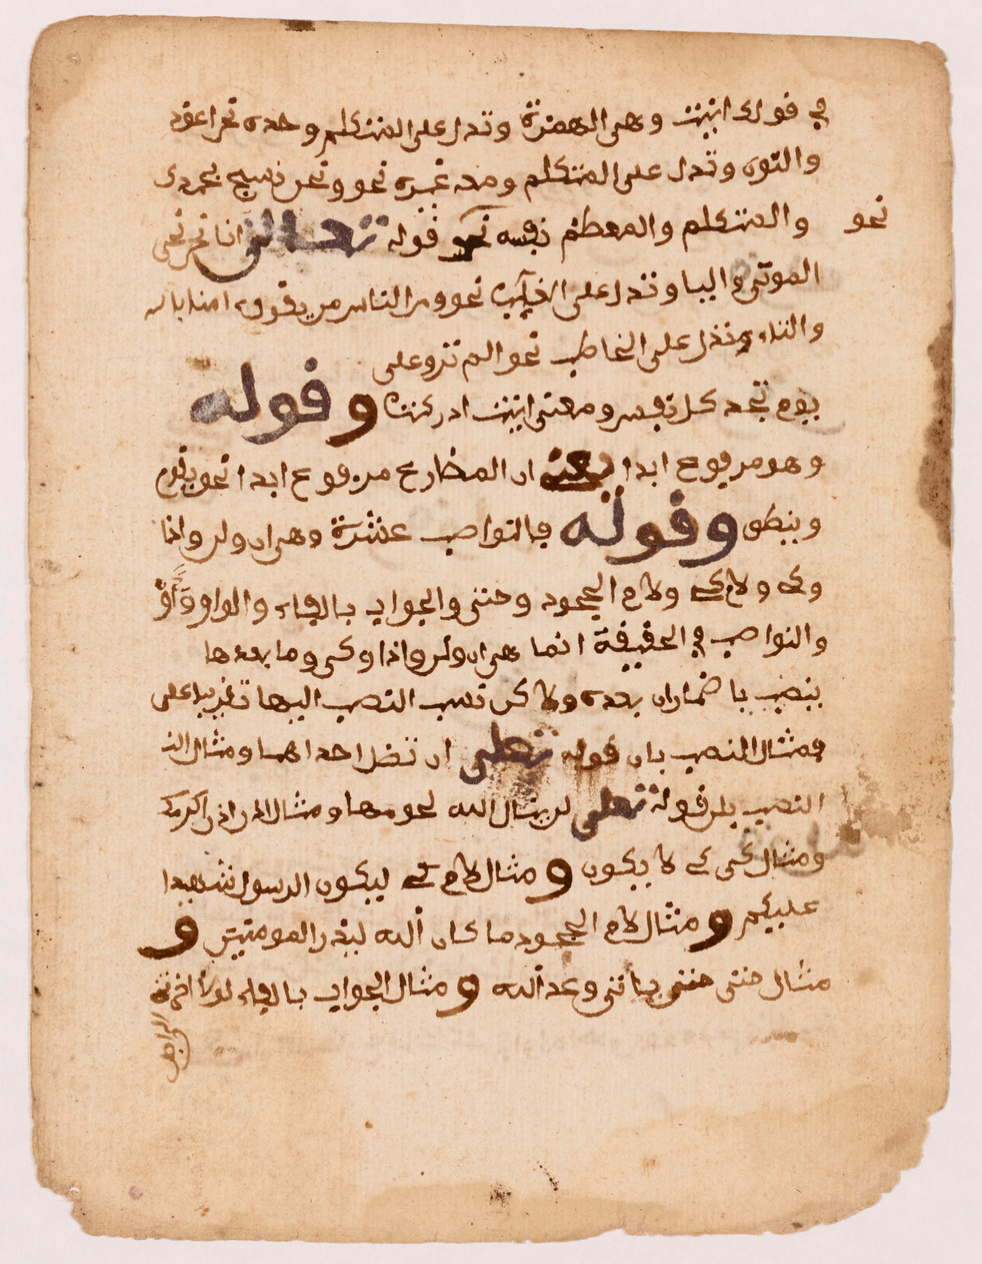 في قولك انيت وهي الهمزة وتدل على المتكلم وحده نحو اعوذ
والنون وتدل على المتكلم ومعه غيره نحو ونحن نسبح بحمدك
نحو
والمتكلم والمعظم نفسه نحو قوله تعالى انا نحن نحي
الموتى واليا وتدل على الغايب نحو ومن الناس من يقول امنا بالله
والتاء وتدل على المخاطب نحو الم تر وعلى
يوم تجد كل نفس ومعنى انيت ادركت وقوله
وهو مرفوع ابدا يعني ان المضارع مرفوع ابدا نحو يقوم
وينطق وقوله فالنواصب عشرة وهي ان ولن واذا
وكي ولام كي ولام الجحود وحتى والجواب بالفاء والواو وَأَوْ
والنواصب في الحقيقة انما هي ان ولن واذا وكي وما بعدها
ينصب باضمار ان بعده ولاكن نسب النصب اليها تقريبا على
فمثال النصب بان قوله تعلى ان تضل احداهما ومثال
النصب بلن قوله تعلى لن ينال الله لحومها ومثال اذن اذن اكرمك
ومثال كي كي لا يكون و مثال لام كي ليكون الرسول شهيدا
عليكم و مثال لام الجحود ما كان الله ليذر المومنين و
مثال حتى حتى ياتي وعد الله و مثال الجواب بالفاء لولا اخرتني